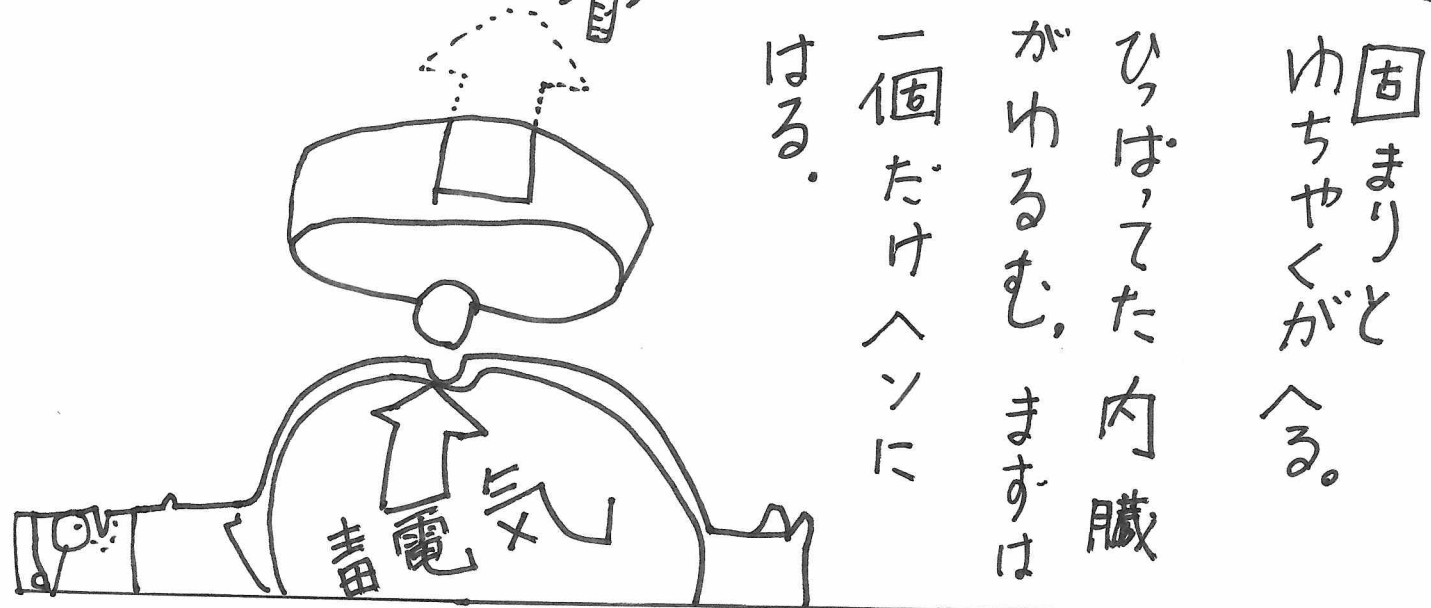 固まりと
ゆちやくがへる。
ひっぱってた内臓
がゆるむ。まずは
一個だけヘンに
はる。
畜電気